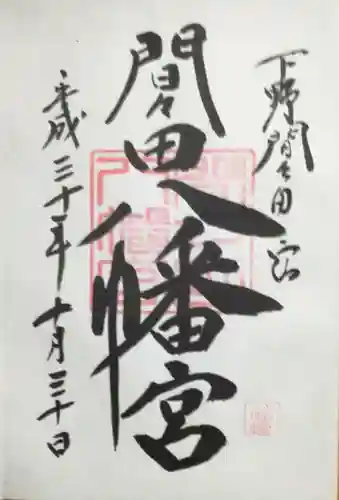 下野間々田宿
間々田八幡宮
平成三十年十月三十日